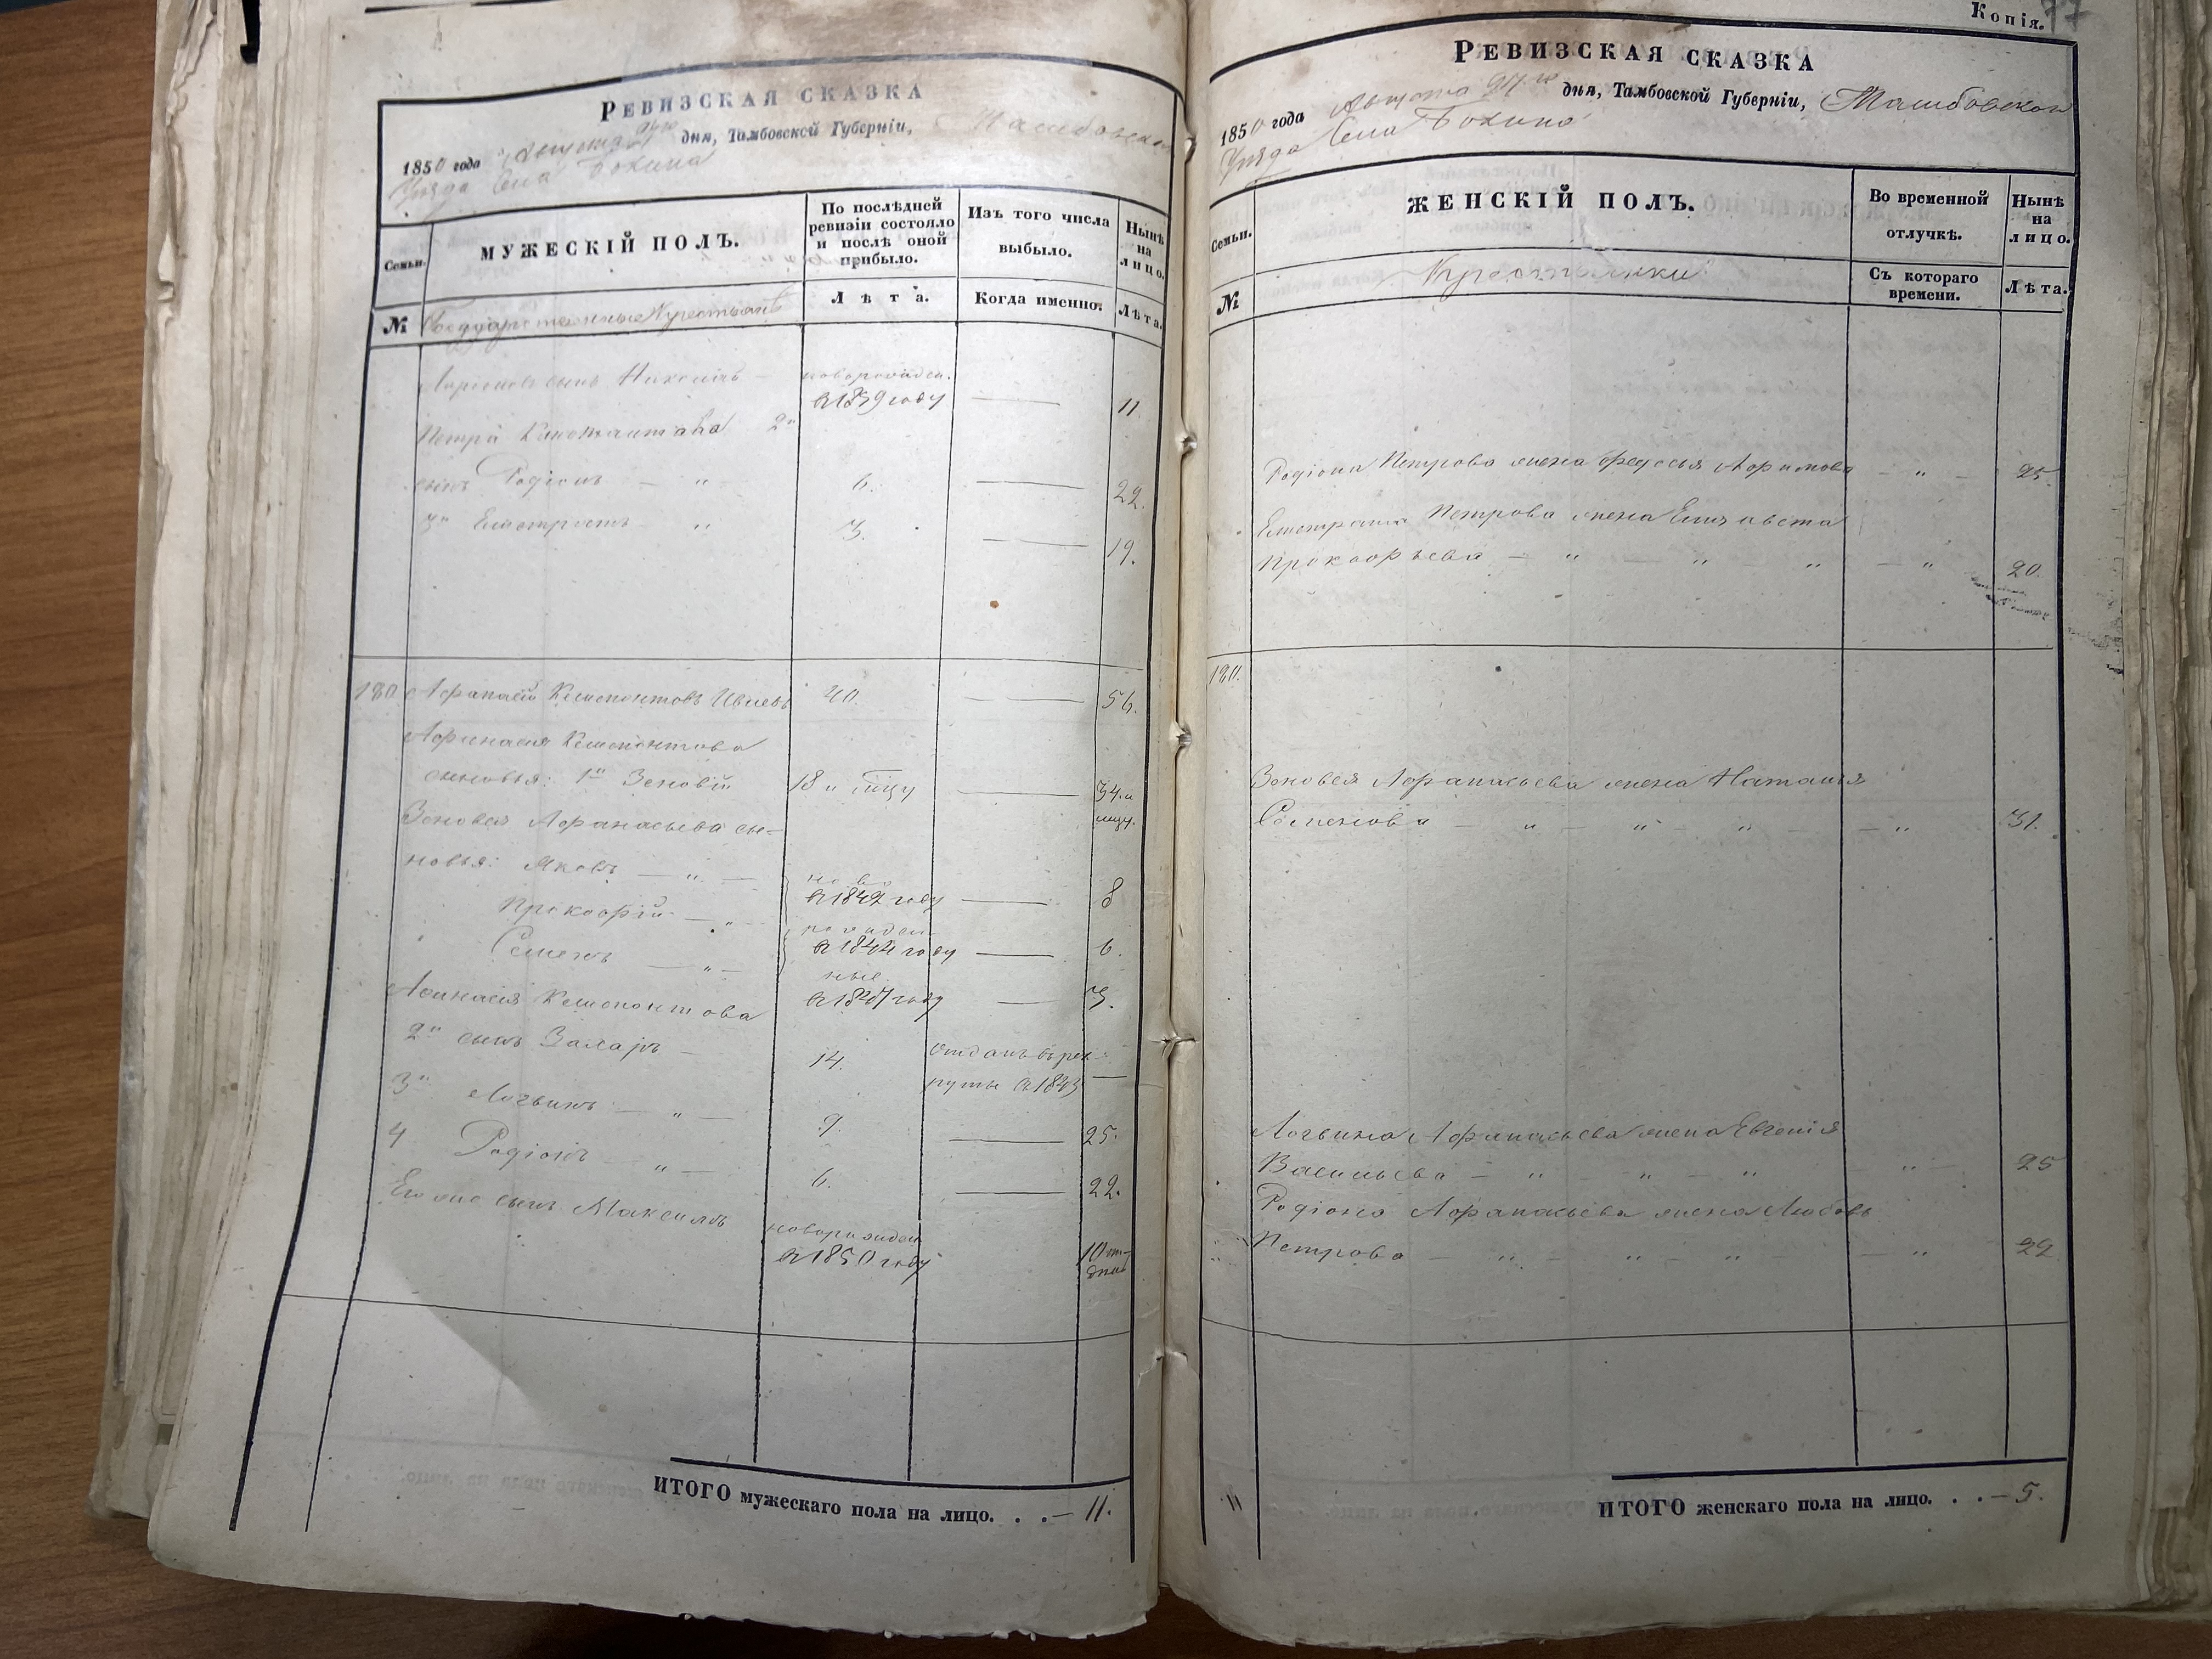 РЕВИЗСКАЯ СКАЗКА
1850 года Августа 24го дня, Тамбовской Губерніи, Тамбовскаго
Уѣзда Села
Семьи.
МУЖЕСКІЙ ПОЛЪ.
По послѣдней ревизіи состояло и послѣ оной прибыло.
Изъ того числа выбыло.
Нынѣ на лицо.
№
Государственные Крестьяне
Лѣта.
Когда именно.
Лѣта.
Ларіоновъ сынъ новорожден.
в 1839 году — 11
Петра 2й
сынъ Родіонъ — " 6. — 22.
3й Елистратъ — " 3. — 19.
180. Афанасій Ксенофонтовъ 40. — 56.
Афанасія Ксенофонтова
сыновья: 1й Зеновій 18 и — 34. и
Зеновея Афанасьева сы-
новья: Яковъ — " — ново
в 1842 году — 8
Прокофій — "
рожден
Семенъ — " — в 1844 году — 6.
ные
в 1847 году — 3.
Афанасія Ксенофонтова
2й сынъ Захаръ — 14. отданъ въ рек-
руты в 1843 —
3й Логвинъ — " — 9. — 25.
4 Родіонъ — " — 6. — 22.
Его же сынъ Максимъ новорожден
в 1850 году 10ти
дней
ИТОГО мужескаго пола на лицо. . .— 11.
Копія.
77
РЕВИЗСКАЯ СКАЗКА
1850 года Августа 24го дня, Тамбовской Губерніи, Тамбовскаго
Уѣзда Села
Семьи.
ЖЕНСКІЙ ПОЛЪ.
Во временной отлучкѣ.
Нынѣ на лицо.
№
Крестьянки
Съ котораго времени.
Лѣта.
Родіона Петрова жена Федосья — " — 25.
Елистрата Петрова жена Елизавета
Прокофьева — " — " — " — " 20.
180.
Зеновея Афанасьева жена Наталія
Семенова — " — " — " — " 31.
Логвина Афанасьева жена Евгенія
Васильева — " — " — " " — 25
Родіона Афанасьева жена Любовь
Петрова — " — " — " — " 22
ИТОГО женскаго пола на лицо. . .— 5.